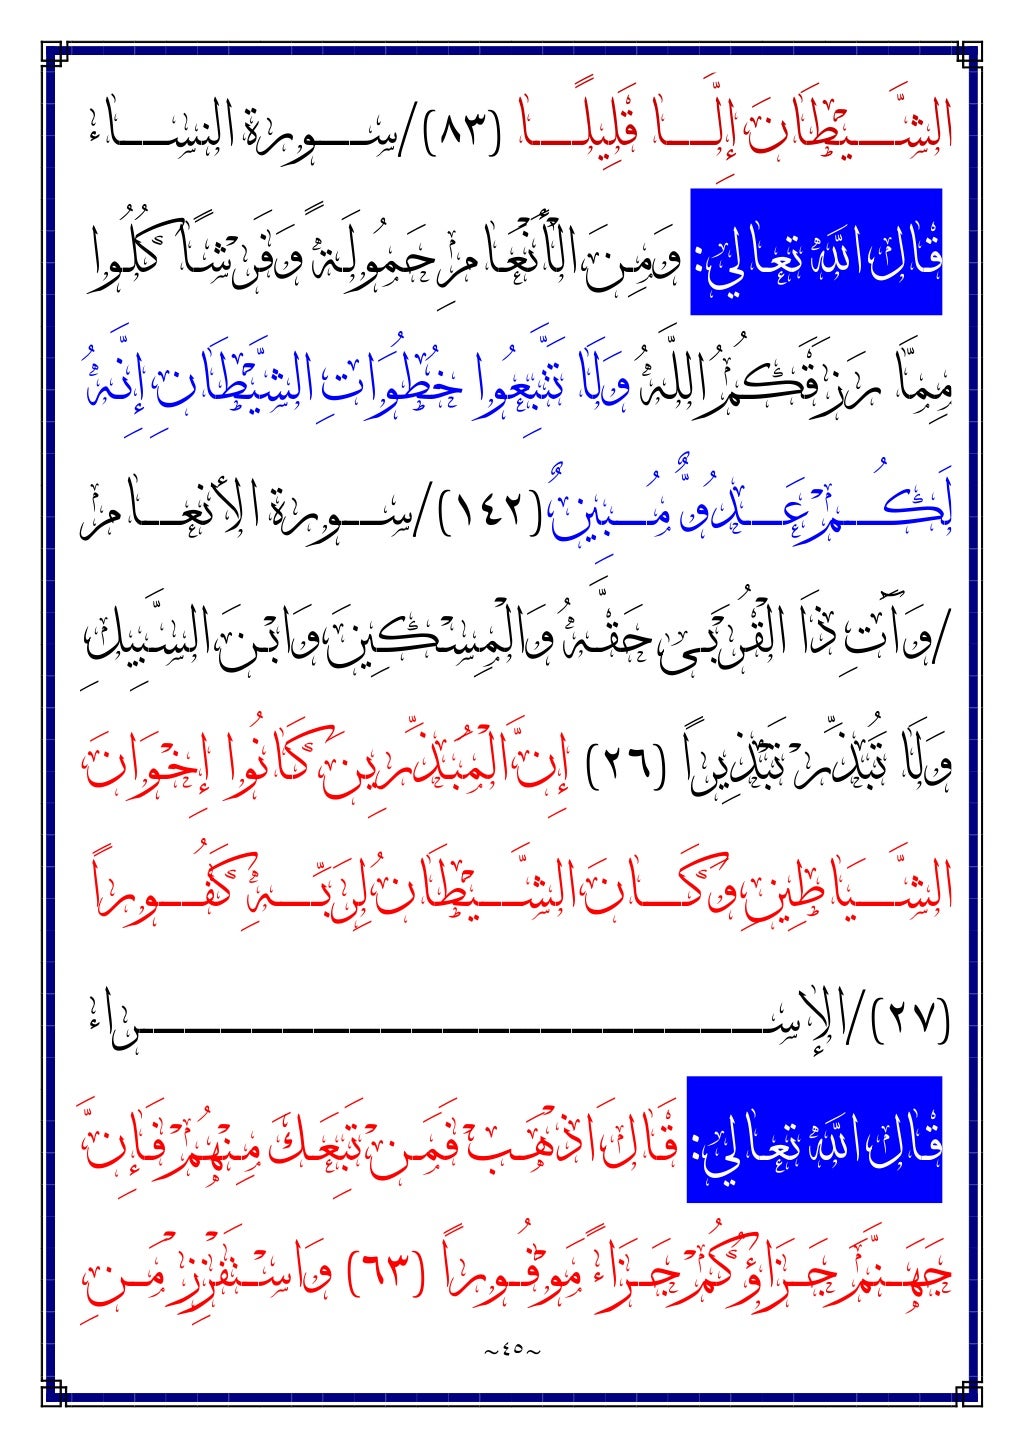 الشَّيْطَانَ إِلَّا قَلِيلًا (٨٣)/سورة النساء
قال الله تعالي: وَمِنَ الْأَنْعَامِ حَمُولَةً وَفَرْشًا كُلُوا
مِمَّا رَزَقَكُمُ اللَّهُ وَلَا تَتَّبِعُوا خُطُوَاتِ الشَّيْطَانِ إِنَّهُ
لَكُمْ عَدُوٌّ مُبِينٌ (١٤٢)/سورة الأنعام
/وَآتِ ذَا الْقُرْبَى حَقَّهُ وَالْمِسْكِينَ وَابْنَ السَّبِيلِ
وَلَا تُبَذِّرْ تَبْذِيراً (٢٦) إِنَّ الْمُبَذِّرِينَ كَانُوا إِخْوَانَ
الشَّيَاطِينِ وَكَانَ الشَّيْطَانُ لِرَبِّهِ كَفُوراً
(٢٧)/الإسراء
قال الله تعالي: قَالَ اذْهَبْ فَمَنْ تَبِعَكَ مِنْهُمْ فَإِنَّ
جَهَنَّمَ جَزَاؤُكُمْ جَزَاءً مَوْفُوراً (٦٣) وَاسْتَفْزِزْ مَنِ
~٤٥~